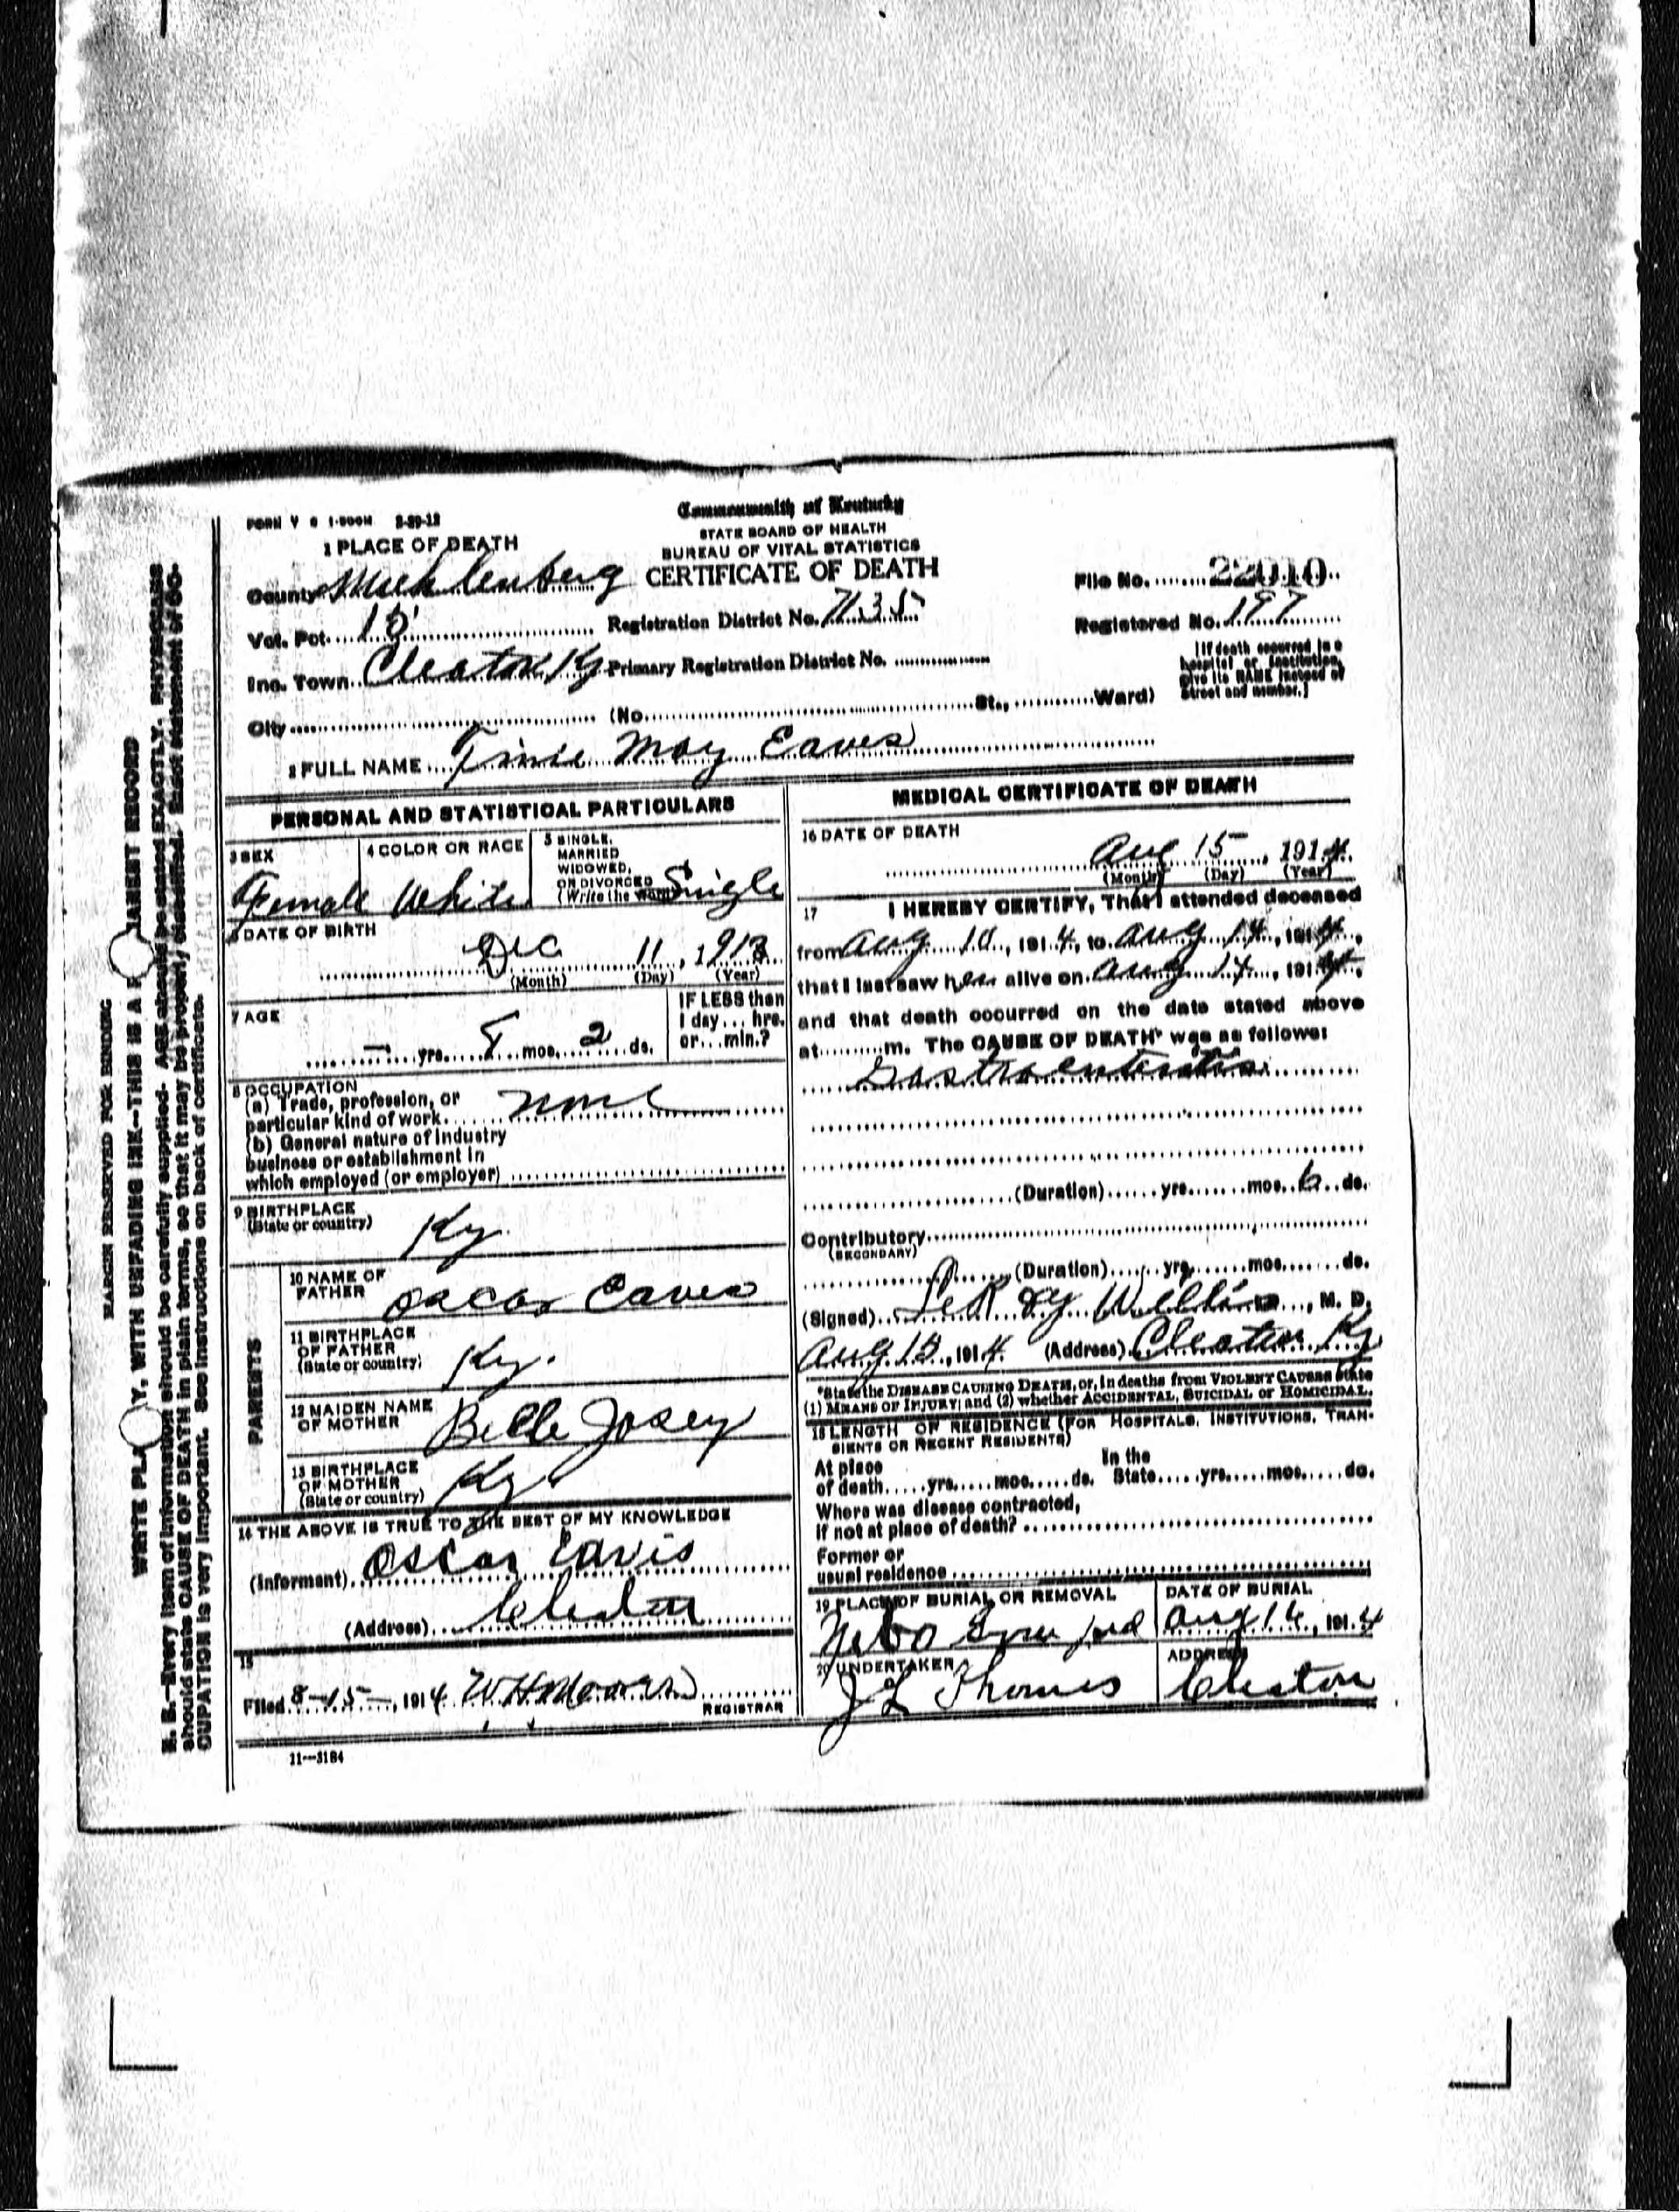 FORM V S 1-500M 2-29-12
Commonwealth of Kentucky
STATE BOARD OF HEALTH
BUREAU OF VITAL STATISTICS
CERTIFICATE OF DEATH
1 PLACE OF DEATH
County Muehlenberg
Vot. Pct. 15
Inc. Town Cleaton Ky
City (No. St., Ward)
Registration District No. 7135
Primary Registration District No.
File No. 22010
Registered No. 197
[If death occurred in a
hospital or institution,
give its NAME instead of
street and number.]
2 FULL NAME Tinie May Eaves
PERSONAL AND STATISTICAL PARTICULARS
3 SEX
Female
4 COLOR OR RACE
White
5 SINGLE,
MARRIED
WIDOWED,
OR DIVORCED
(Write the word) Single
6 DATE OF BIRTH
Dec 11, 1913
(Month) (Day) (Year)
7 AGE
— yrs. 8 mos. 2 ds.
IF LESS than
1 day... hrs.
or...min.?
8 OCCUPATION
(a) Trade, profession, or
particular kind of work. none
(b) General nature of industry
business or establishment in
which employed (or employer)
9 BIRTHPLACE
(State or country) Ky.
PARENTS
10 NAME OF
FATHER Oscar Eaves
11 BIRTHPLACE
OF FATHER
(State or country) Ky.
12 MAIDEN NAME
OF MOTHER Belle Josey
13 BIRTHPLACE
OF MOTHER
(State or country) Ky
14 THE ABOVE IS TRUE TO THE BEST OF MY KNOWLEDGE
(Informant) Oscar Eavis
(Address) Cleaton
15
Filed 8-15-, 1914
REGISTRAR
11—3184
MEDICAL CERTIFICATE OF DEATH
16 DATE OF DEATH
Aug 15, 1914
(Month) (Day) (Year)
17 I HEREBY CERTIFY, That I attended deceased
from Aug 10, 1914, to Aug 14, 1914,
that I last saw her alive on Aug 14, 1914,
and that death occurred on the date stated above
at m. The CAUSE OF DEATH* was as follows:
Gastroenteritis
(Duration) yrs. mos. 6 ds.
Contributory
(SECONDARY)
(Duration) yrs. mos. ds.
(Signed) M. D.
Aug 15, 1914 (Address) Cleaton Ky
*State the DISEASE CAUSING DEATH, or, in deaths from VIOLENT CAUSES state
(1) MEANS OF INJURY; and (2) whether ACCIDENTAL, SUICIDAL or HOMICIDAL.
18 LENGTH OF RESIDENCE (FOR HOSPITALS, INSTITUTIONS, TRAN-
SIENTS OR RECENT RESIDENTS)
At place of death yrs. mos. ds. In the State yrs. mos. ds.
Where was disease contracted,
if not at place of death?
Former or
usual residence
19 PLACE OF BURIAL OR REMOVAL
Nebo Grave yard
DATE OF BURIAL
Aug 16, 1914
20 UNDERTAKER
J L Thomas
ADDRESS
Cleaton
MARGIN RESERVED FOR BINDING
WRITE PLA Y, WITH UNFADING INK—THIS IS A P ANENT RECORD
N. B.—Every item of information should be carefully supplied. AGE should be stated EXACTLY. PHYSICIANS
should state CAUSE OF DEATH in plain terms, so that it may be properly classified. Exact statement of OC-
CUPATION is very important. See instructions on back of certificate.